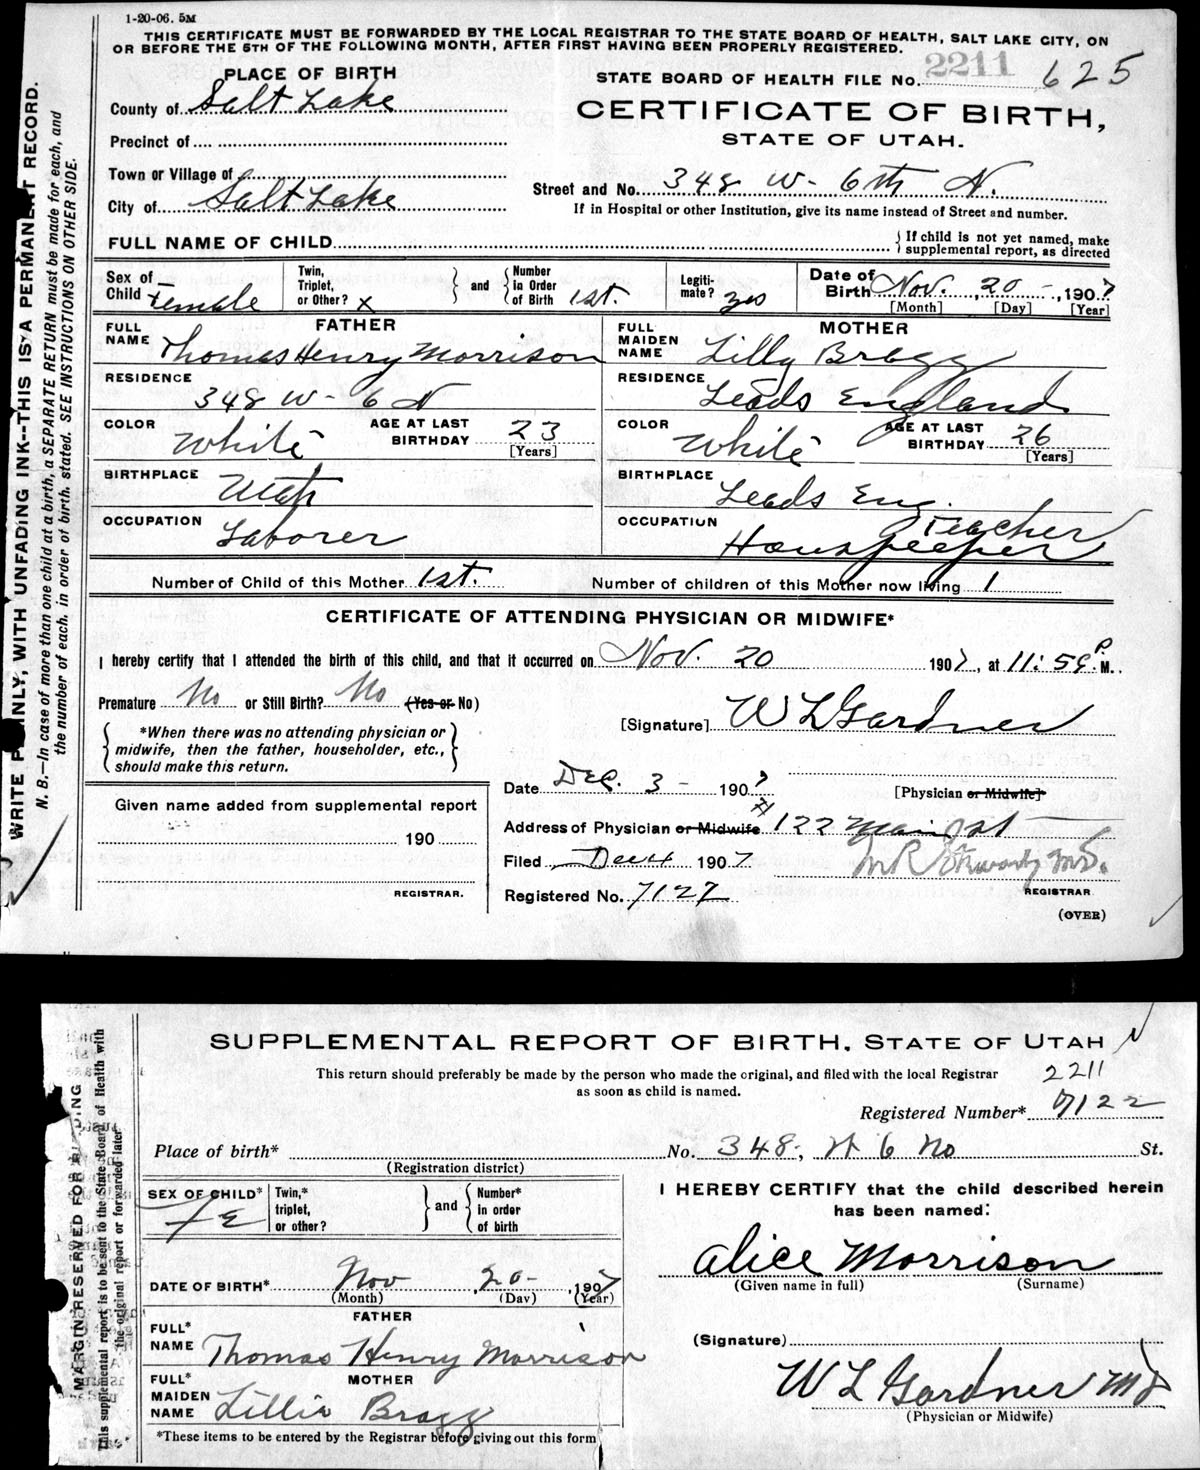 1-20-06. 5M
THIS CERTIFICATE MUST BE FORWARDED BY THE LOCAL REGISTRAR TO THE STATE BOARD OF HEALTH, SALT LAKE CITY, ON
OR BEFORE THE 5TH OF THE FOLLOWING MONTH, AFTER FIRST HAVING BEEN PROPERLY REGISTERED.
PLACE OF BIRTH
STATE BOARD OF HEALTH FILE No. 2211 625
County of Salt Lake
CERTIFICATE OF BIRTH,
STATE OF UTAH.
Precinct of
Town or Village of
Street and No. 348 W- 6th N.
City of Salt Lake
If in Hospital or other Institution, give its name instead of Street and number.
FULL NAME OF CHILD
If child is not yet named, make
supplemental report, as directed
Sex of Child Female
Twin, Triplet, or Other? x
and
Number in Order of Birth 1st.
Legiti-mate? yes
Date of Birth Nov. 20 -, 1907
[Month] [Day] [Year]
FATHER
FULL NAME Thomas Henry Morrison
MOTHER
FULL MAIDEN NAME Lilly Bragg
RESIDENCE 348 W- 6 N
RESIDENCE Leads England
COLOR White
AGE AT LAST BIRTHDAY 23
[Years]
COLOR White
AGE AT LAST BIRTHDAY 26
[Years]
BIRTHPLACE Utah
BIRTHPLACE Leads Eng.
OCCUPATION Laborer
OCCUPATION Teacher
Houskeeper
Number of Child of this Mother 1st.
Number of children of this Mother now living 1
CERTIFICATE OF ATTENDING PHYSICIAN OR MIDWIFE*
I hereby certify that I attended the birth of this child, and that it occurred on Nov. 20 1907, at 11:59 P.M.
Premature No or Still Birth? No (Yes or No)
[Signature] W L Gardner
*When there was no attending physician or
midwife, then the father, householder, etc.,
should make this return.
Date Dec. 3 - 1907
[Physician or Midwife]
Given name added from supplemental report
190
REGISTRAR.
Address of Physician or Midwife 122 Main St
Filed Dec 4 1907
Registered No. 7127
REGISTRAR
(OVER)
WRITE PLAINLY, WITH UNFADING INK--THIS IS A PERMANENT RECORD.
N. B.—In case of more than one child at a birth, a SEPARATE RETURN must be made for each, and
the number of each, in order of birth, stated. SEE INSTRUCTIONS ON OTHER SIDE.
SUPPLEMENTAL REPORT OF BIRTH, STATE OF UTAH
This return should preferably be made by the person who made the original, and filed with the local Registrar
as soon as child is named.
2211
Registered Number* 7122
Place of birth*
No. 348, W 6 No St.
(Registration district)
SEX OF CHILD* Fe
Twin,* triplet, or other?
and
Number* in order of birth
I HEREBY CERTIFY that the child described herein
has been named:
Alice Morrison
(Given name in full) (Surname)
DATE OF BIRTH* Nov 20- , 1907
(Month) (Day) (Year)
FATHER
FULL* NAME Thomas Henry Morrison
(Signature)
MOTHER
FULL* MAIDEN NAME Lillie Bragg
W L Gardner MD
(Physician or Midwife)
*These items to be entered by the Registrar before giving out this form
MARGIN RESERVED FOR BINDING
This supplemental report is to be sent to the State Board of Health with
the original report or forwarded later